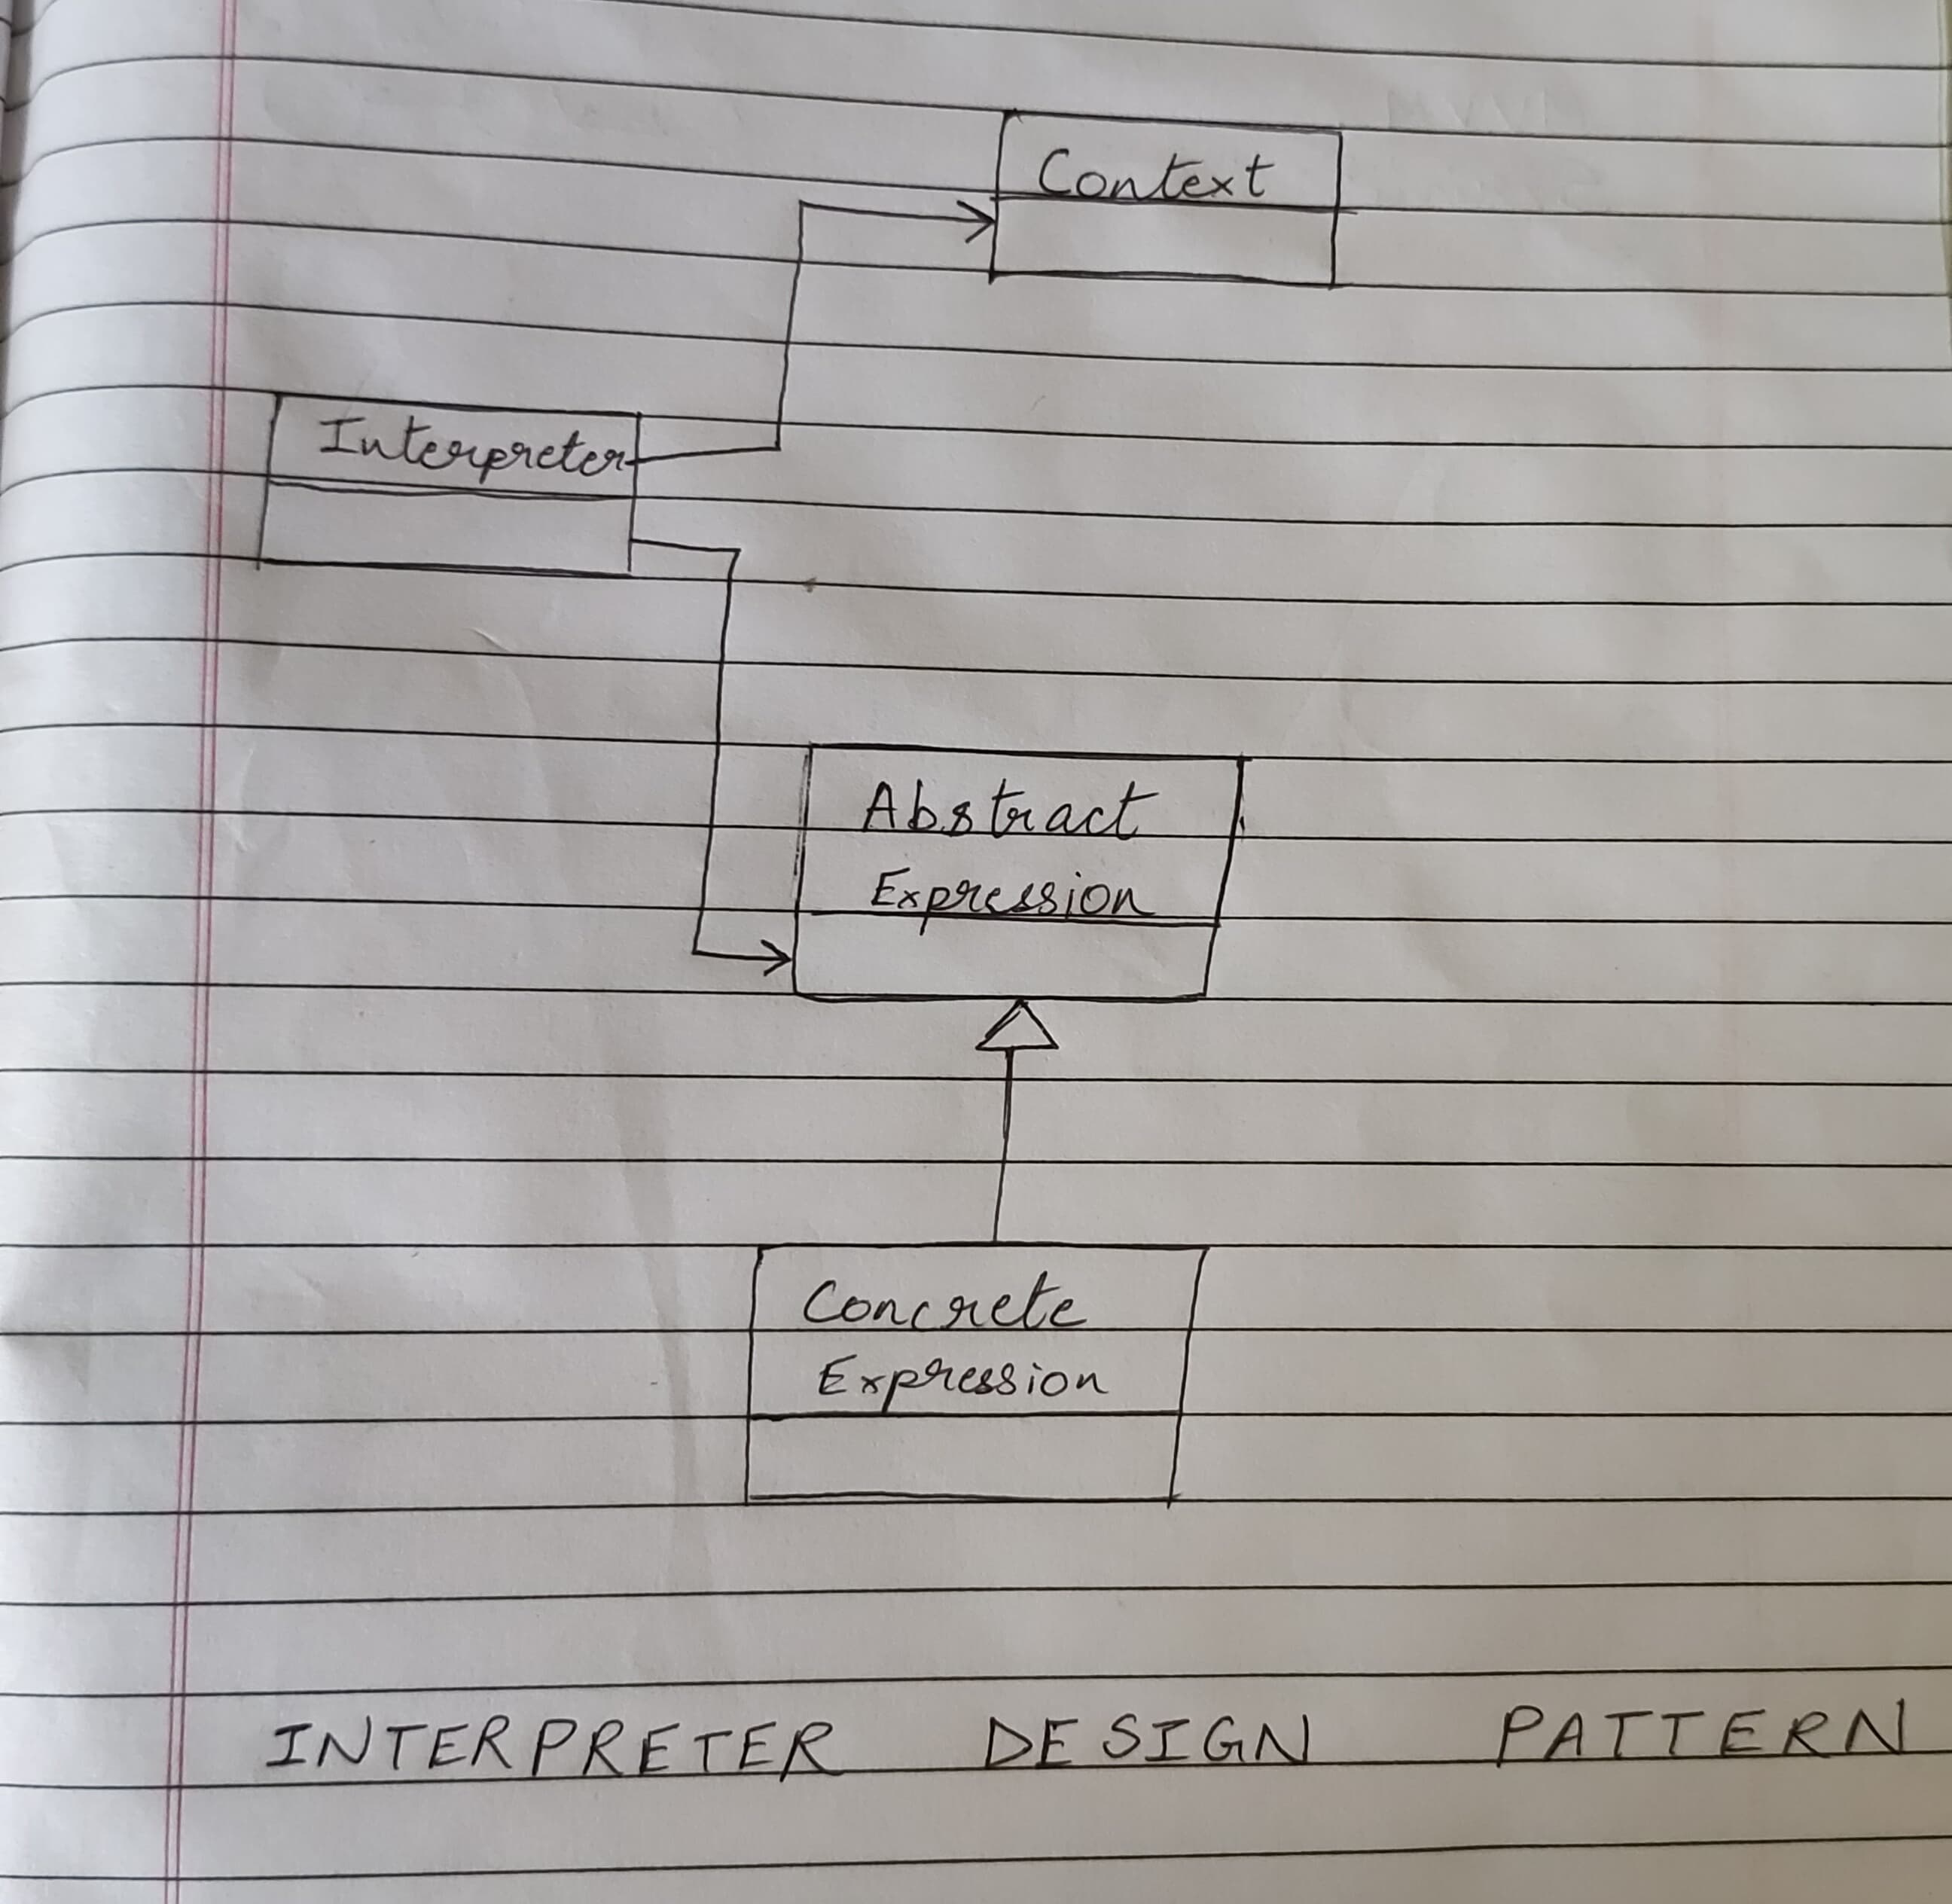 Context
Interpreter
Abstract
Expression
Concrete
Expression
INTERPRETER DESIGN PATTERN